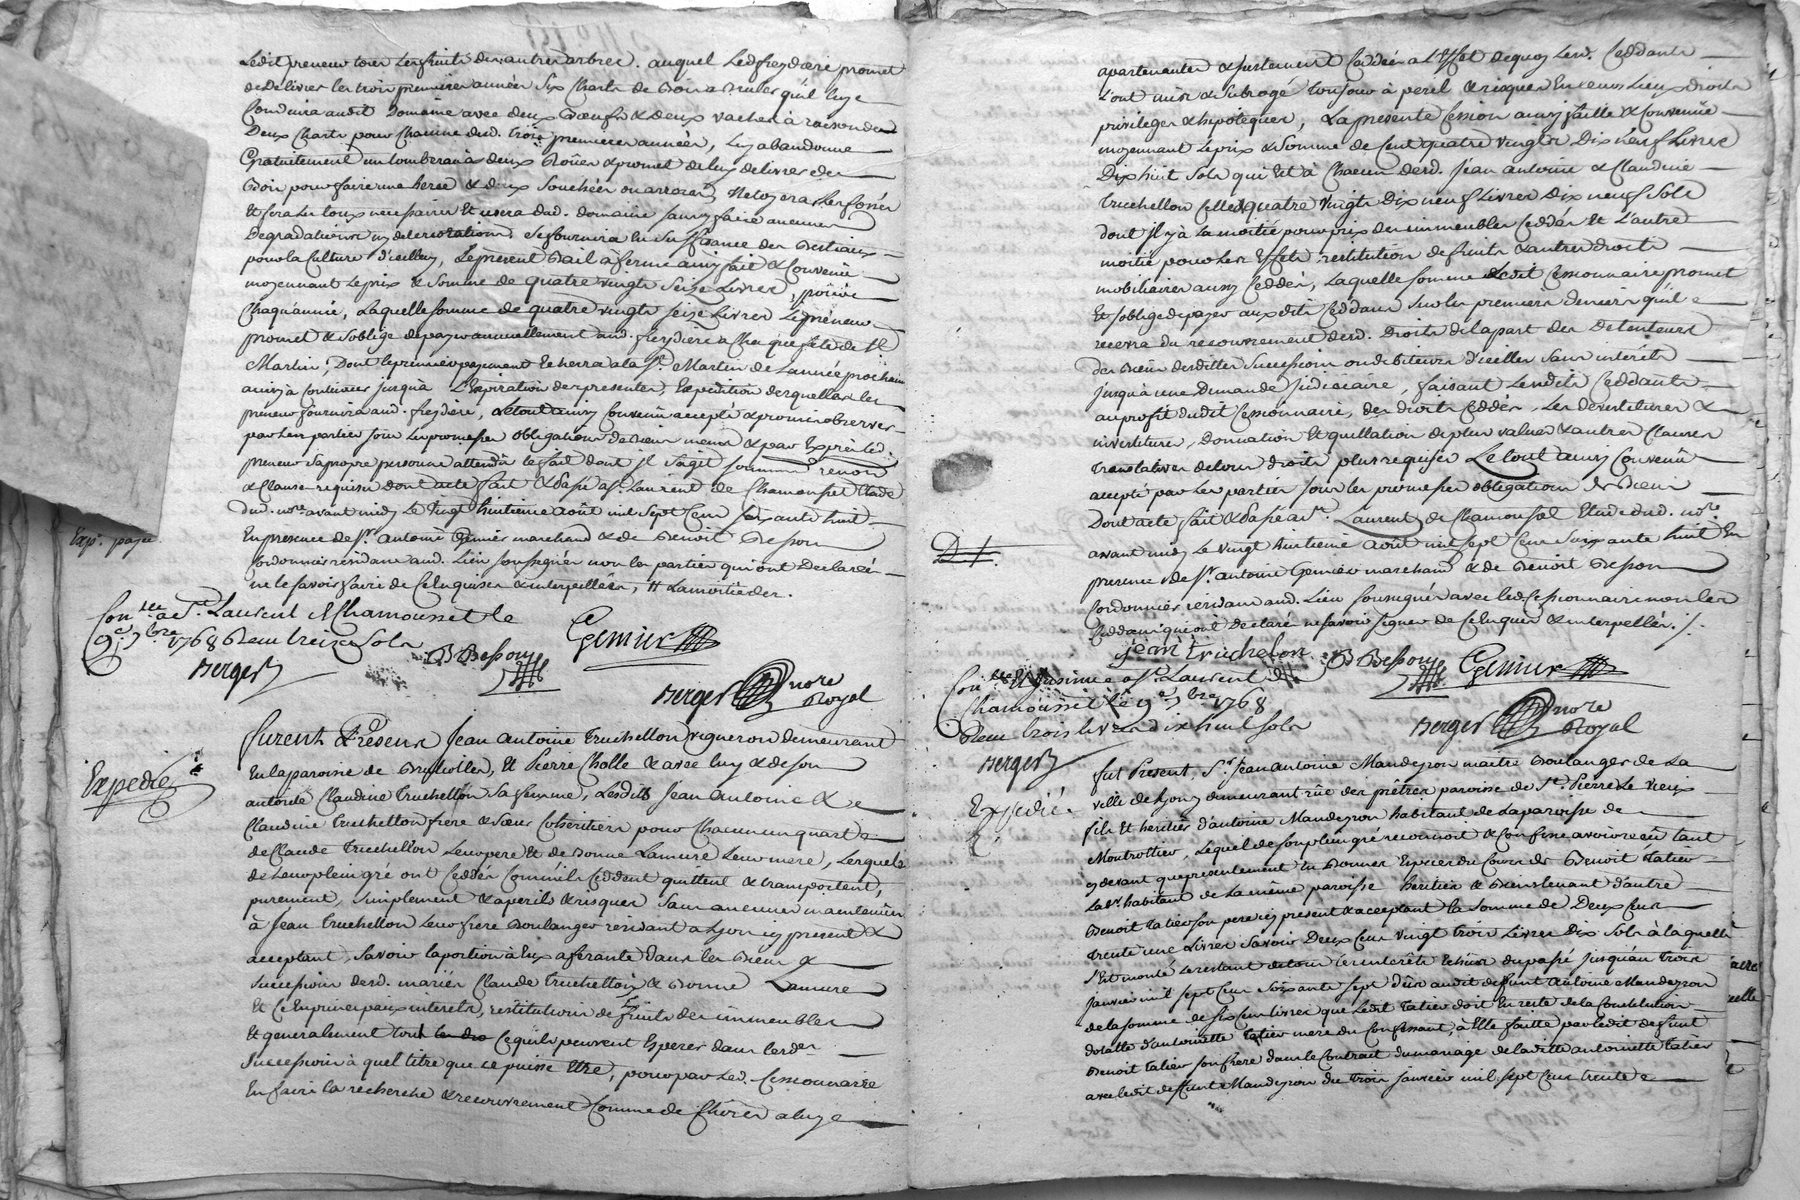 Ledit preneur tous les fruits des autres arbres. auquel Led freydiere promet
de delivrer les trois premieres années six Charts de Bois a Bruler qu'il luy e
Conduira audit Domaine avec deux Bœufs & deux vaches à raison de
Deux Charts pour Chacune desd. trois premieres années, luy abandonne
Gratuitement un tomberau à deux Roües & promet de luy delivrer du
Bois pour faire une herse & deux
Et fera les tous necessaires Et usera dud. domaine sans y faire aucunes
Degradations ny deteriorations, se fournira la suffisance des Bestiaux
pour la Culture d'icelluy, Le present Bail a ferme ainsy fait & Convenu
moyennant le prix & somme de quatre vingts seize Livres, pour
Chaqu'année, Laquelle somme de quatre vingts seize Livres Le preneur
promet & s'oblige de payer annuellement aud. freydiere a Chaque fête de St
Martin, Dont le premier payement Echerra a la St Martin de L'année prochaine
ainsy à Continuer jusqu'à L'Expiration des presentes, Expedition desquelles les
preneur fournira aud. freydiere, Le tout ainsy Convenu accepté & promis observer
par les parties sous les promesses obligations de Biens mesme & par Exprès led.
preneur sa propre personne attendu le fait dont il s'agit soumissions renon
& Clauses requises dont acte fait & Passé a St Laurent de Chamousset Etude
dud. nore avant midy Le vingt huitieme août mil sept Cent soixante huit
En presence de Sr antoine Gemier marchand & de Benoit Besson
Cordonnier résidans aud. Lieu soussignés non les parties qui ont Declaré
ne le savoir faire de Ce Enquises & interpellées, H Lamortié der.
Exp. payée
Conllé a St Laurent de Chamousset le
9e 7bre 1768 Reçu treize sols
Berger
B Besson
Gemier
Berger nore Royal
furent Présens Jean Antoine Truchellon vigneron demeurant
Expediée
En la paroisse de Brullolles, Et Pierre Cholle & avec luy & de son
autorité Claudine Truchellon sa femme, Lesdits Jean Antoine & e
Claudine Truchellon frere & Sœur Coheritiers pour Chacun un quart e
de Claude Truchellon Leur pere Et de Bonne Lamure Leur mere, Lesquels
de Leur plein gré ont Ceddés Comm'ils Ceddent quittent & transportent,
purement, simplement & a perils & risques sans aucunes maintenües
à Jean Truchellon Leur frere Boulanger residant a Lyon cy present &
acceptant, savoir la portion à Eux aférante dans les Biens &
Succession desd. mariés Claude Truchellon & Bonne Lamure
Et Ce En principaux interets, restitutions de fruits des immeubles
Et generalement tout Cequ'ils peuvent Esperer dans lesdes
Successions à quel titre que ce puisse Etre, pour par Led. Cessionnaire
En faire la recherche & recouvrement Comme de Choses a luy e
apartenantes & justement Ceddées a L'Effet de quoy Lesd. Ceddants
L'ont mis & Subrogé toujour à peril & risques En leurs Lieux droits
privileges & hipoteques, La presente Cession ainsy faitte & Convenüe
moyennant le prix & Somme de Cent quatre vingts Dix neuf Livres
Dix huit Sols qui Est à Chacun desd. Jean antoine & Claudine
Truchellon Celle de quatre vingts Dix neuf Livres Dix neuf Sols
dont il y à la moitié pour prix des immeubles Ceddés Et L'autre
moitié pour les Effets restitution de fruits & autres droits
mobiliaires aussy Ceddés, Laquelle somme Ledit Cessionnaire promet
Et s'oblige de payer aux dits Ceddans sur les premiers deniers qu'il e
recevra du recouvrement desd. Droits de la part des Detenteurs
des Biens desdittes Successions ou debiteurs d'icelles sans interêts
jusqu'à une Demande judiciaire, faisant Lesdits Ceddants
au profit dudit Cessionnaire, des droits Ceddés, Les devestitures &
investitures, donnation Et quittation de plus values & autres Clauses
translatives de tous droits plus requises Le tout ainsy Convenu
accepté par les parties sous les promesses obligations de Biens
Dont acte fait & Passé a St Laurent de Chamousset Etude dud. nore
avant midy Le vingt huitieme août mil sept Cent soixante huit En
D +
presence de Sr antoine Gemier marchand & de Benoit Besson
Cordonnier résidans aud. Lieu soussignés avec led. Cessionnaire non les
Ceddans qui ont déclaré ne savoir signer de Ce Enquis & interpellés./.
jean truchelon
B Besson
Gemier
Conllé Et insinué a St Laurent de
Chamousset Le 9e 7bre 1768
Reçu trois livres dix huit sols
Berger
Berger nore Royal
fut Present, Sr Jean Antoine Mandeyron maitre Boulanger de La
ville de Lyon y demeurant rüe des prêtres paroisse de St Pierre Le vieux
Expedié.
fils Et heritier d'antoine Mandeyron habitant de La paroisse de
Montrottier, Lequel de son plein gré reconnoit & Confesse avoir reçu tant
cy devant que presentement En Bonnes Especes du Cours de Benoit Tatier
Labr habitant de La même paroisse heritier & Bienstenant d'autre
Benoit Tatier son pere icy present & acceptant la somme de Deux Cent
Trente une Livres savoir Deux Cent vingt trois Livres Dix Sols à laquelle
s'Est monté Le restant de tous Les interêts Echus du passé jusqu'au Trois
janvier mil sept Cent soixante sept dûs audit deffunt Antoine Mandeyron
de la somme de six Cent livres que Ledit Tatier doit En reste de la Constitution
dotalle d'antoinette Tatier mere du Confessant, à Elle faitte par ledit defunt
Benoit Tatier son frere dans le Contrait du mariage de laditte antoinette Tatier
avec ledit deffunt Mandeyron du trois janvier mil sept Cent trente e